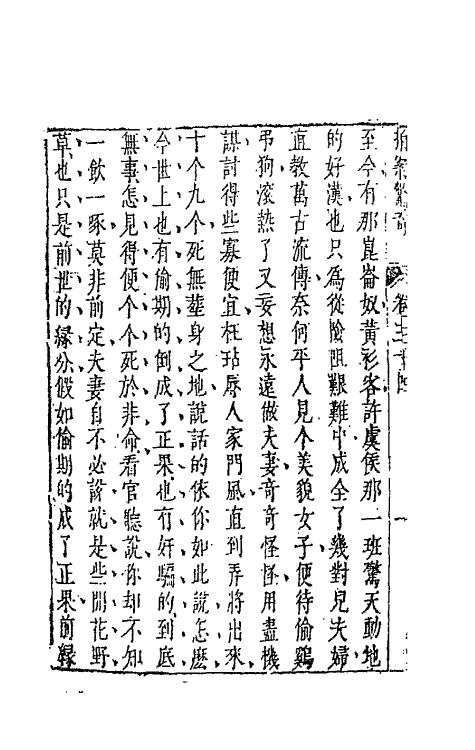 拍案驚奇 卷三十四 一
至今有那崑崙奴黃衫客許虞侯那一班驚天動地
的好漢也只為從險阻艱難中成全了幾對兒夫婦
直教萬古流傳奈何平人見个美貌女子便待偷鷄
弔狗滾熱了又妄想永遠做夫妻奇奇怪怪用盡機
謀討得些寡便宜枉玷辱人家門風直到弄將出來
十个九个死無塟身之地說話的依你如此說怎麽
今世上也有偷期的倒成了正果也有奸騙的到底
無事怎見得便个个死於非命看官聽說你却不知
一飲一啄莫非前定夫妻自不必說就是些閒花野
草也只是前世的緣分假如偷期的成了正果前緣